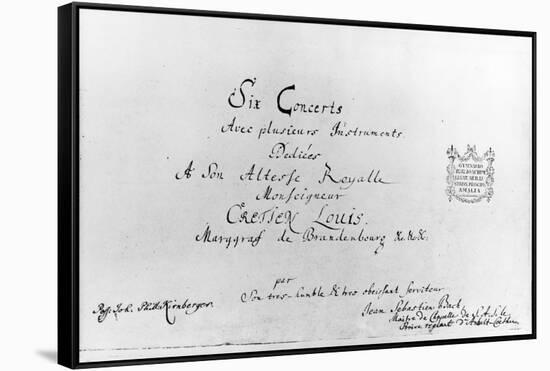 Six Concerts
Avec plusieurs Instruments.
Dediées
A Son Altesse Royalle
Monseigneur
CRETIEN LOUIS.
Marggraf de Brandenbourg &c. &c. &c.
par
Son tres-humble & tres obeissant serviteur
Jean Sebastien Bach,
Maitre de Chapelle de S. A. S. le
Prince regnant d'Anhalt-Cœthen.
Poss. Joh. Phill. Kirnberger.
GYMNASIO
AMALIA